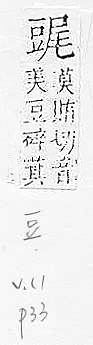 莫賄切音
美豆碎萁
豆
v.11
p33